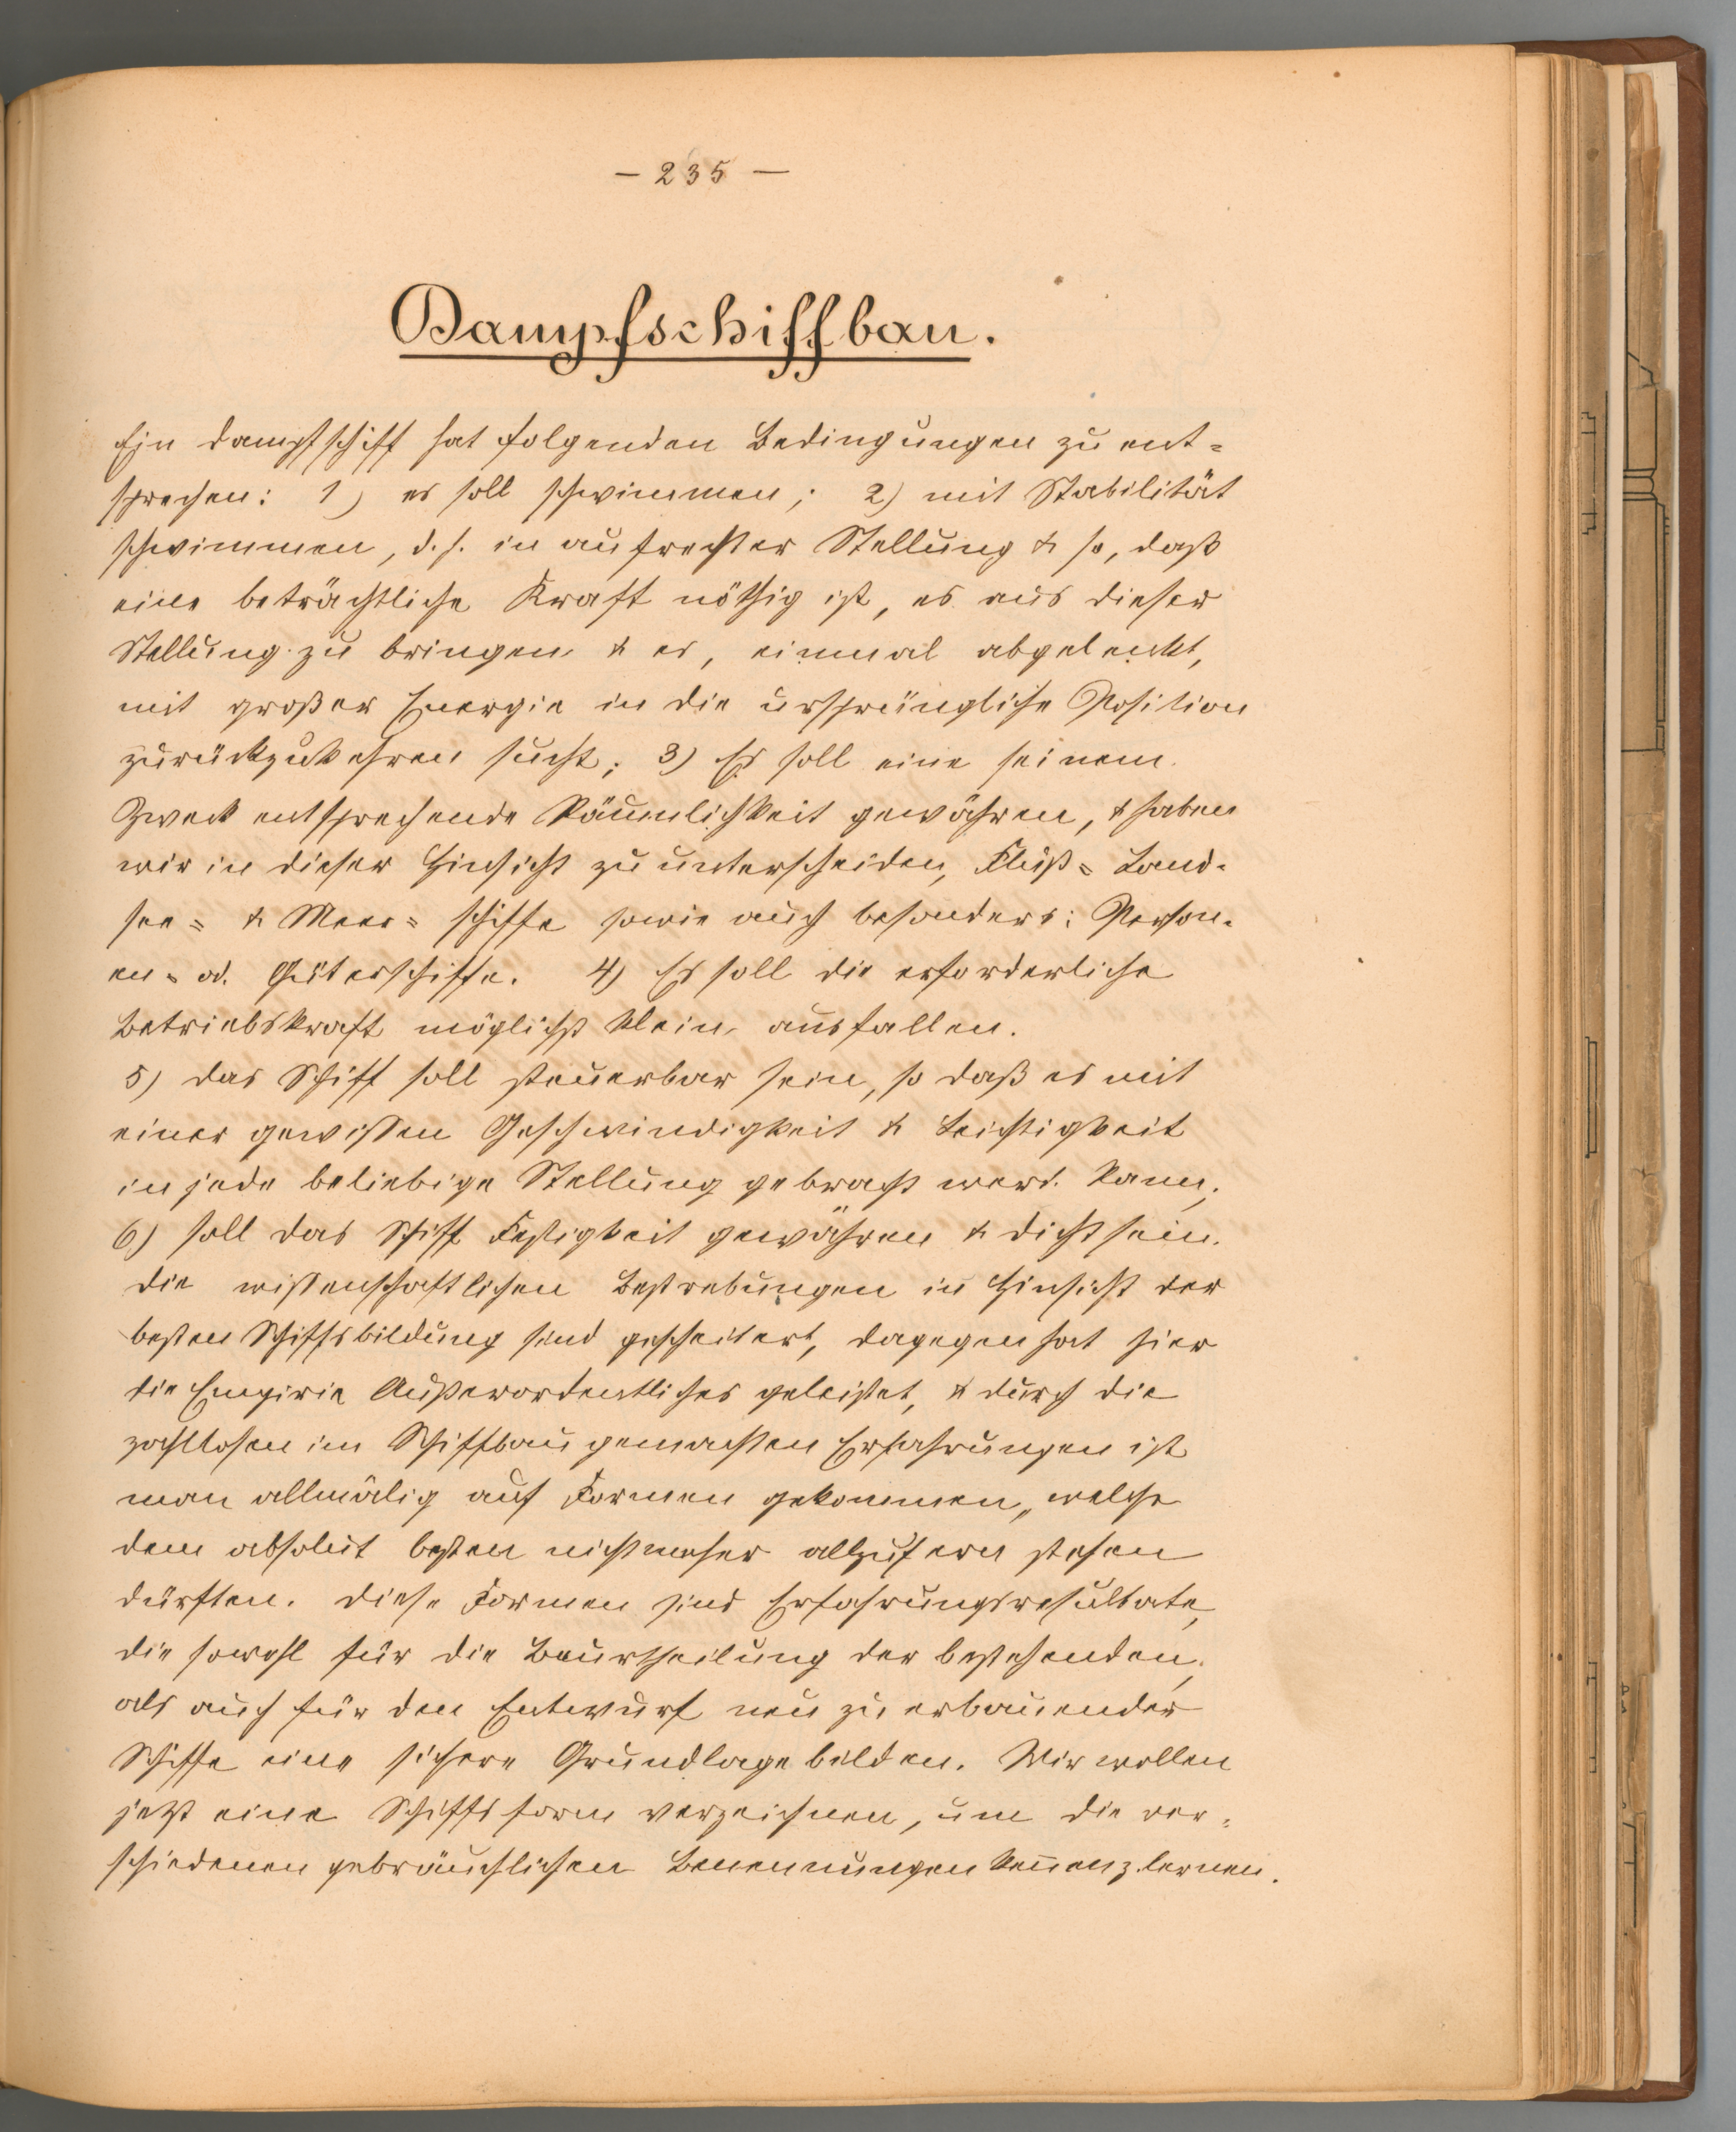 — 235 —
Dampfschiffbau.
Ein Dampfschiff hat folgenden Bedingungen zu ent=
sprechen: 1) es soll schwimmen; 2) mit Stabilität
schwimmen, d. h. in aufrechter Stellung & so, daß
eine beträchtliche Kraft nöthig ist, es aus dieser
Stellung zu bringen & es, einmal abgelenkt,
mit großer Energie in die ursprüngliche Position
zurückzukehren sucht; 3) Es soll eine seinem
Zweck entsprechende Räumlichkeit gewähren, & haben
wir in dieser Hinsicht zu unterscheiden, Fluß= Land-
see= & Meer= schiffe sowie auch besonders: Person-
en= od. Güterschiffe. 4) Es soll die erforderliche
Betriebskraft möglichst klein ausfallen.
5) das Schiff soll steuerbar sein, so daß es mit
einer gewissen Geschwindigkeit & Leichtigkeit
in jede beliebige Stellung gebracht werd. kann;
6) soll das Schiff Festigkeit gewähren & dicht sein.
Die wissenschaftlichen Bestrebungen in Hinsicht der
besten Schiffsbildung sind gescheitert, dagegen hat hier
die Empirie Außerordentliches geleistet, & durch die
zahllosen im Schiffbau gemachten Erfahrungen ist
man allmälig auf Formen gekommen, welche
dem absolut besten nicht mehr allzufern stehen
dürften. Diese Formen sind Erfahrungsresultate,
die sowohl für die Beurtheilung der bestehenden,
als auch für den Entwurf neu zu erbauender
Schiffe eine sichere Grundlage bilden. Wir wollen
jetzt eine Schiffsform verzeichnen, um die ver=
schiedenen gebräuchlichen Benennungen kennenz. lernen.